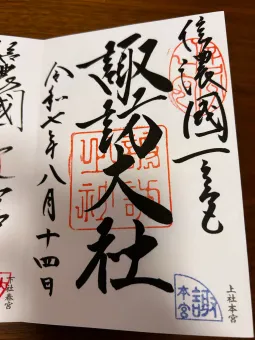 信濃國一之宮
諏訪大社
令和七年八月十四日
上社本宮
諏訪大社
本宮